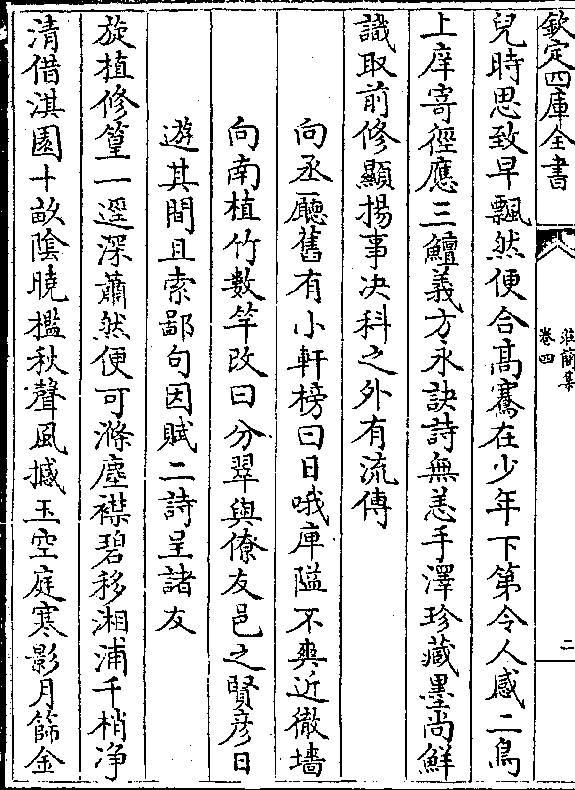 欽定四庫全書
莊簡集
卷四
二
兒時思致早飄然便合髙騫在少年下第令人感二鳥
上庠寄徑應三鱣義方永訣詩無恙手澤珍藏墨尚鮮
識取前修顯揚事决科之外有流傳
向丞廳舊有小軒榜曰日哦庫隘不爽近徹墻
向南植竹數竿改曰分翠與僚友邑之賢彦日
遊其間且索鄙句因賦二詩呈諸友
旋植修篁一逕深蕭然便可滌塵襟碧移湘浦千梢净
清借淇園十畝陰曉檻秋聲風撼玉空庭寒影月篩金